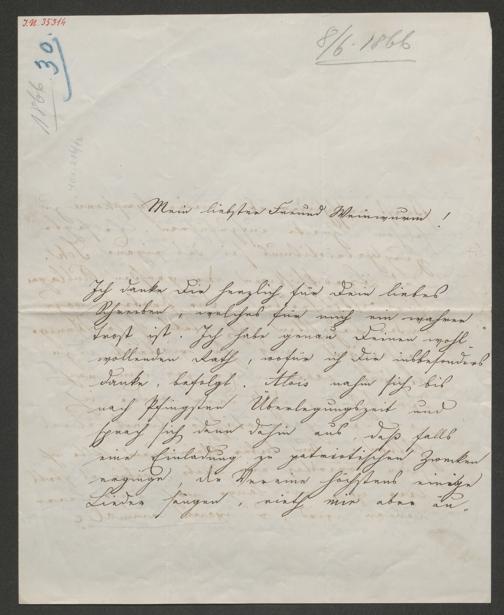 I.N. 35314
30.
1866
8/6. 1866
Mein liebster Freund Weinwurm!
Ich danke Dir herzlich für Dein liebes
Schreiben, welches für mich ein wahrer
Trost ist. Ich habe genau Deinen wohl-
wollenden Rath, wofür ich Dir insbesonders
danke, befolgt. Alois nahm sich bis
nach Pfingsten Überlegungszeit und
sprach sich dann dahin aus, daß falls
eine Einladung zu patriotischen Zwecken
erginge, die Vereine höchstens einige
Lieder sängen, rieth mir aber an,